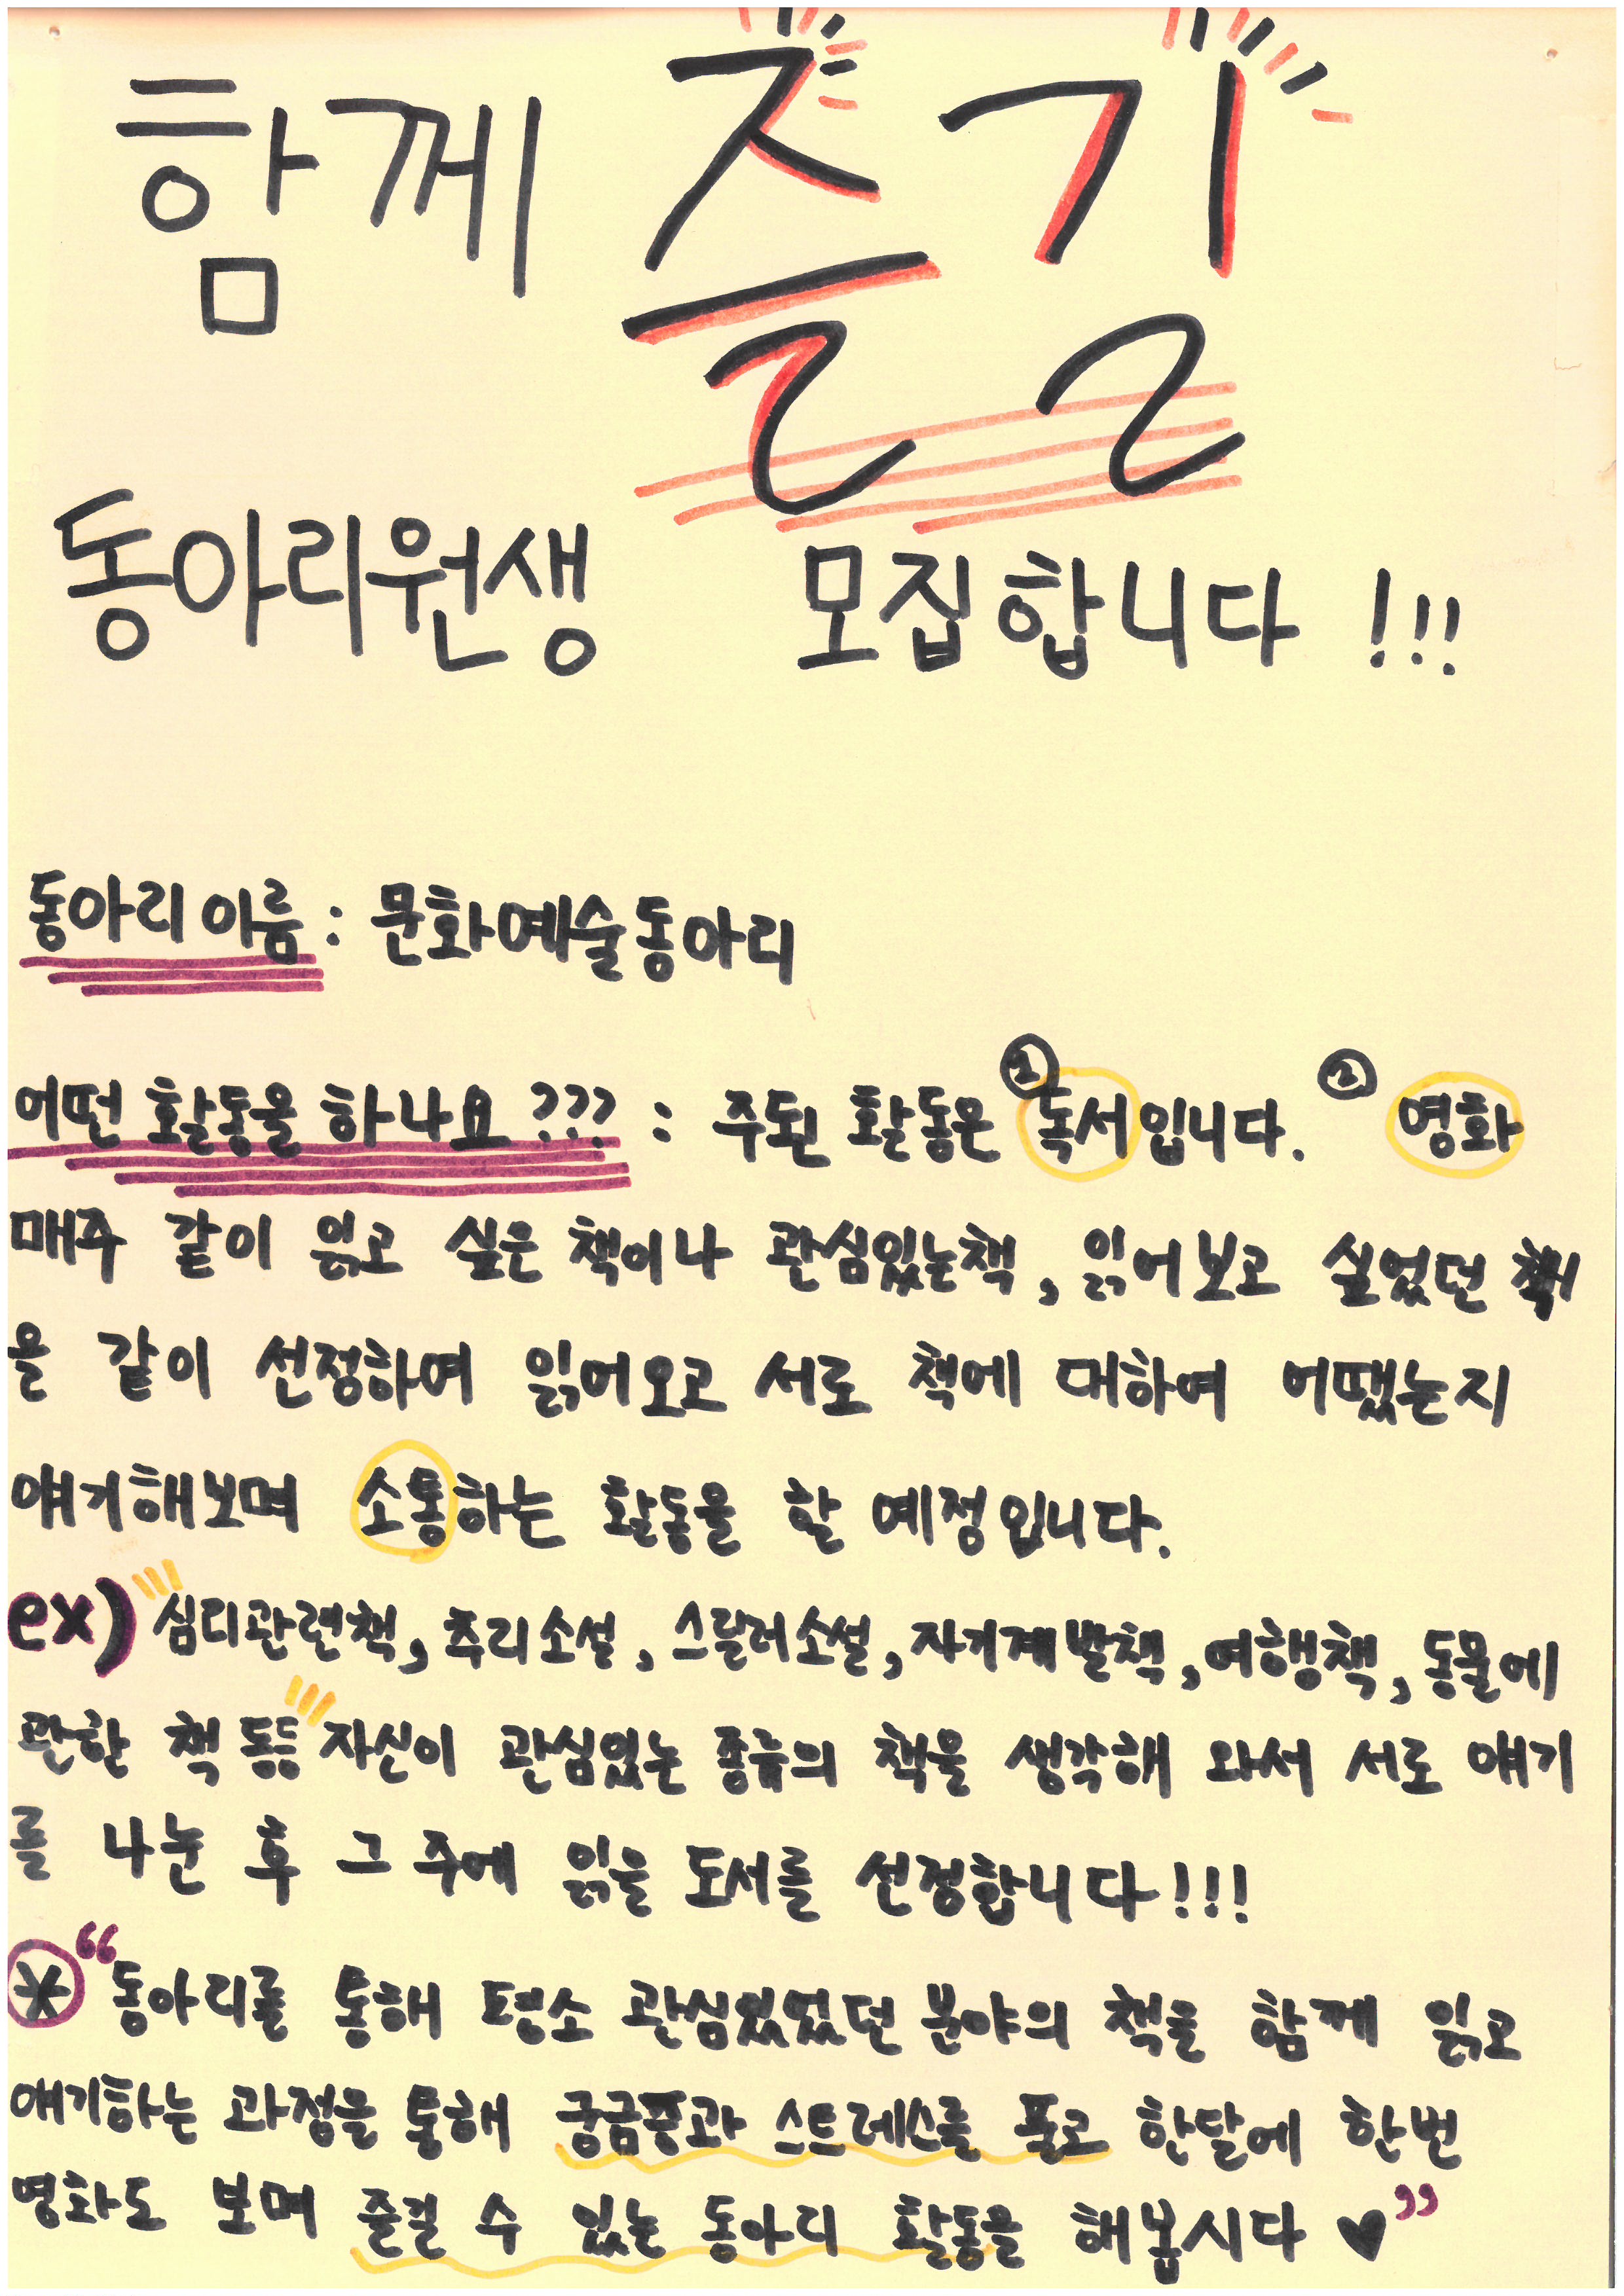 함께 즐길
동아리원생 모집합니다 !!!
동아리 이름 : 문화예술동아리
어떤 활동을 하나요 ??? : 주된 활동은 ① 독서입니다. ② 영화
매주 같이 읽고 싶은 책이나 관심있는책, 읽어보고 싶었던 책
을 같이 선정하여 읽어오고 서로 책에 대하여 어땠는지
얘기해보며 소통하는 활동을 할 예정입니다.
ex) 심리관련책, 추리소설, 스릴러소설, 자기계발책, 여행책, 동물에
관한 책 등등 자신이 관심있는 종류의 책을 생각해 와서 서로 얘기
를 나눈 후 그 주에 읽을 도서를 선정합니다!!!
* “동아리를 통해 평소 관심있었던 분야의 책을 함께 읽고
얘기하는 과정을 통해 궁금증과 스트레스를 풀고 한달에 한번
영화도 보며 즐길 수 있는 동아리 활동을 해봅시다 ♥”